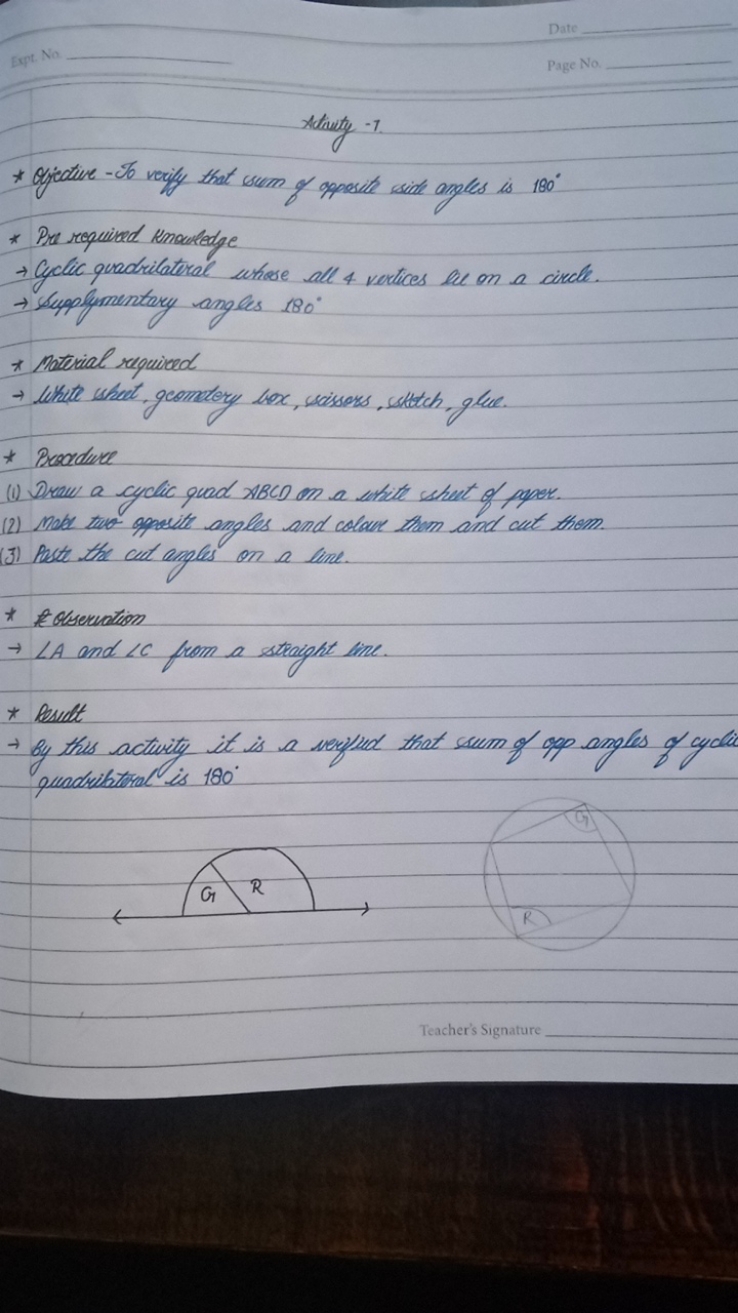 Date
Expt. No.
Page No.
Activity -1.
* Objective - To verify that sum of opposite side angles is 180°
* Pre required knowledge
→ Cyclic quadrilateral whose all 4 vertices lie on a circle.
→ Supplymentary angles 180°
* Material required
→ White sheet, geometery box, scissors, sketch, glue.
* Procedure
(1) Draw a cyclic quad ABCD on a white sheet of paper.
(2) Make two opposite angles and colour them and cut them.
(3) Paste the cut angles on a line.
* Observation
→ ∠A and ∠C from a straight line.
* Result
→ By this activity it is a verified that sum of opp angles of cyclic
quadrilateral is 180°
G R
G
R
Teacher's Signature